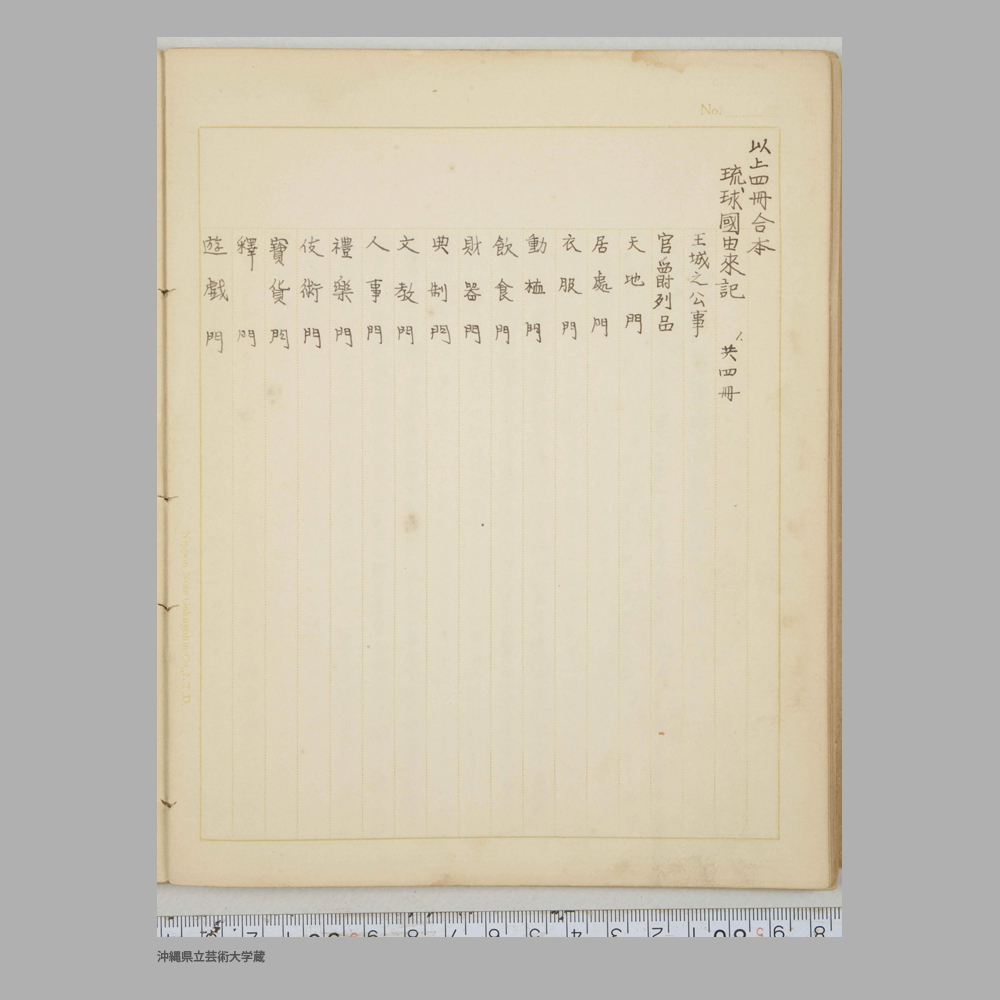 以上四冊合本
琉球國由來記 共四冊
王城之公事
官爵列品
天地門
居處門
衣服門
動植門
飲食門
財器門
典制門
文教門
人事門
禮樂門
伎術門
寶貨門
釋門
遊戲門
No.
沖縄県立芸術大学蔵